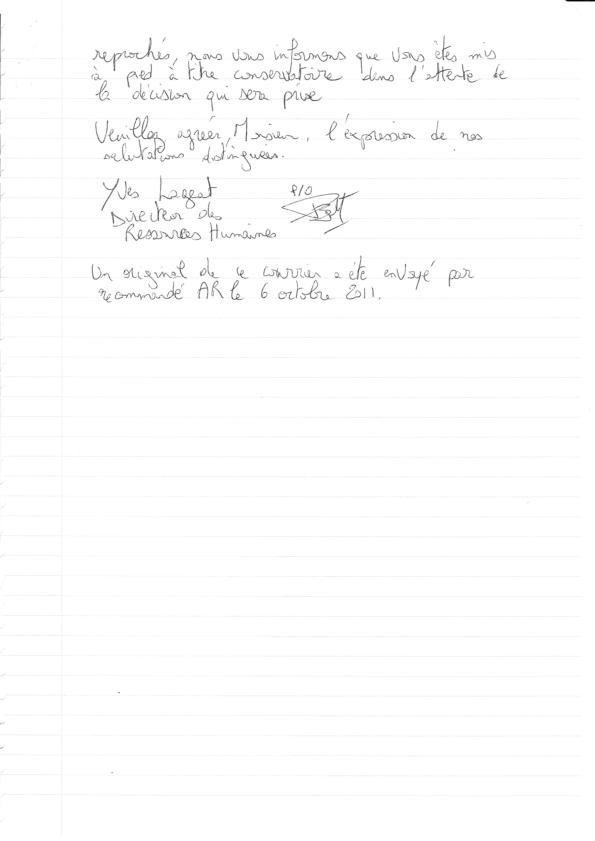 reprochés, nous vous informons que vous êtes mis
à pied à titre conservatoire dans l'attente de
la décision qui sera prise
Veuillez agréer, Monsieur, l'expression de nos
salutations distinguées.
Yves
P/O
Directeur des
Ressources Humaines
Un original de ce courrier a été envoyé par
recommandé AR le 6 octobre 2011.